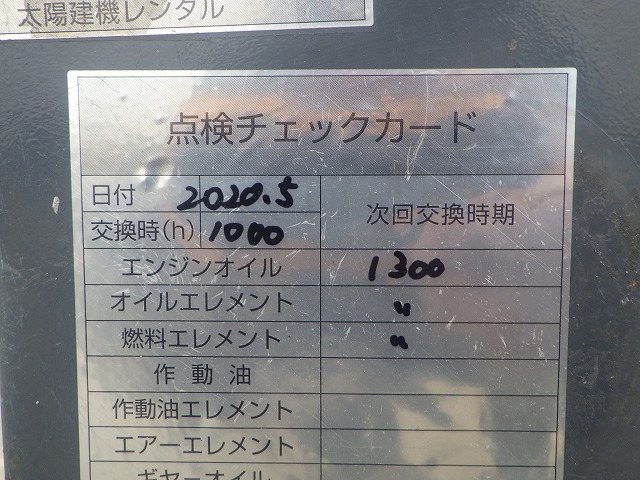 太陽建機レンタル
点検チェックカード
日付 2020.5
交換時(h) 1000
次回交換時期
エンジンオイル 1300
オイルエレメント 〃
燃料エレメント 〃
作動油
作動油エレメント
エアーエレメント
ギヤーオイル